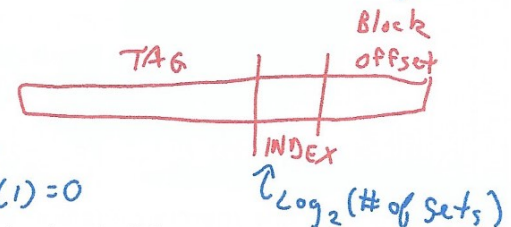 Block
TAG offset
INDEX
(1) = 0
Log₂ (# of sets)